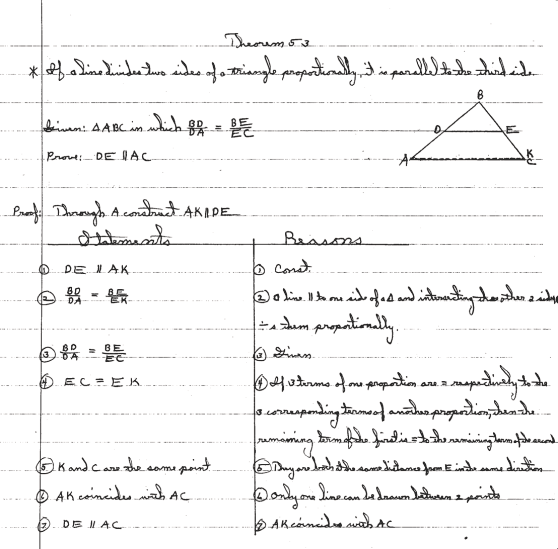 Theorem 53
* If a line divides two sides of a triangle proportionally, it is parallel to the third side.
B
Given: △ABC in which BD/DA = BE/EC
D E
Prove: DE ∥ AC
A K C
Proof: Through A construct AK ∥ DE
Statements Reasons
① DE ∥ AK ① Const.
② BD/DA = BE/EK ② a line ∥ to one side of a △ and intersecting the other 2 sides
÷s them proportionally.
③ BD/DA = BE/EC ③ Given
④ EC = EK ④ If 3 terms of one proportion are = respectively to the
3 corresponding terms of another proportion, then the
remaining term of the first is = to the remaining term of the second
⑤ K and C are the same point ⑤ They are both the same distance from E in the same direction
⑥ AK coincides with AC ⑥ Only one line can be drawn between 2 points
⑦ DE ∥ AC ⑦ AK coincides with AC